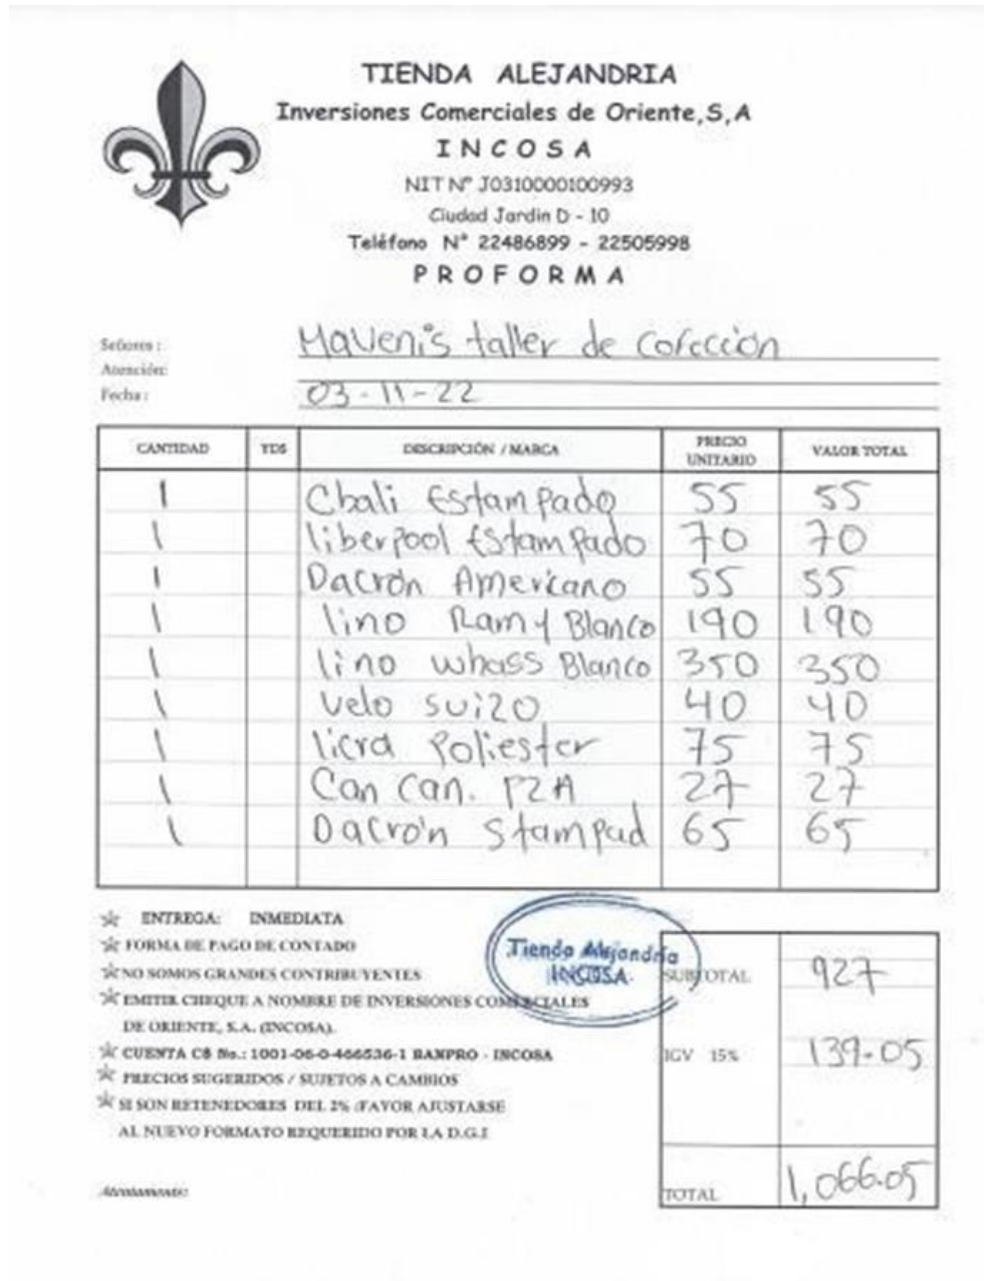 TIENDA ALEJANDRIA
Inversiones Comerciales de Oriente,S,A
INCOSA
NIT Nº J0310000100993
Ciudad Jardin D - 10
Teléfono N° 22486899 - 22505998
PROFORMA
Señores : Mavenis taller de cofección
Atención:
Fecha : 03-11-22
CANTIDAD YDS DESCRIPCIÓN / MARCA PRECIO UNITARIO VALOR TOTAL
1 Chali Estampado 55 55
1 liberpool Estampado 70 70
1 Dacrón Americano 55 55
1 lino Ramy Blanco 190 190
1 lino whass Blanco 350 350
1 velo suizo 40 40
1 licra Poliester 75 75
1 Can can. PZA 27 27
1 Dacrón Stampad 65 65
ENTREGA: INMEDIATA
FORMA DE PAGO DE CONTADO
NO SOMOS GRANDES CONTRIBUYENTES
EMITIR CHEQUE A NOMBRE DE INVERSIONES COMERCIALES
DE ORIENTE, S.A. (INCOSA).
CUENTA C$ No.: 1001-06-0-466536-1 BANPRO - INCOSA
PRECIOS SUGERIDOS / SUJETOS A CAMBIOS
SI SON RETENEDORES DEL 2% (FAVOR AJUSTARSE
AL NUEVO FORMATO REQUERIDO POR LA D.G.I
Atentamente:
Tienda Alejandría
INCOSA
SUBTOTAL 927
IGV 15% 139.05
TOTAL 1,066.05